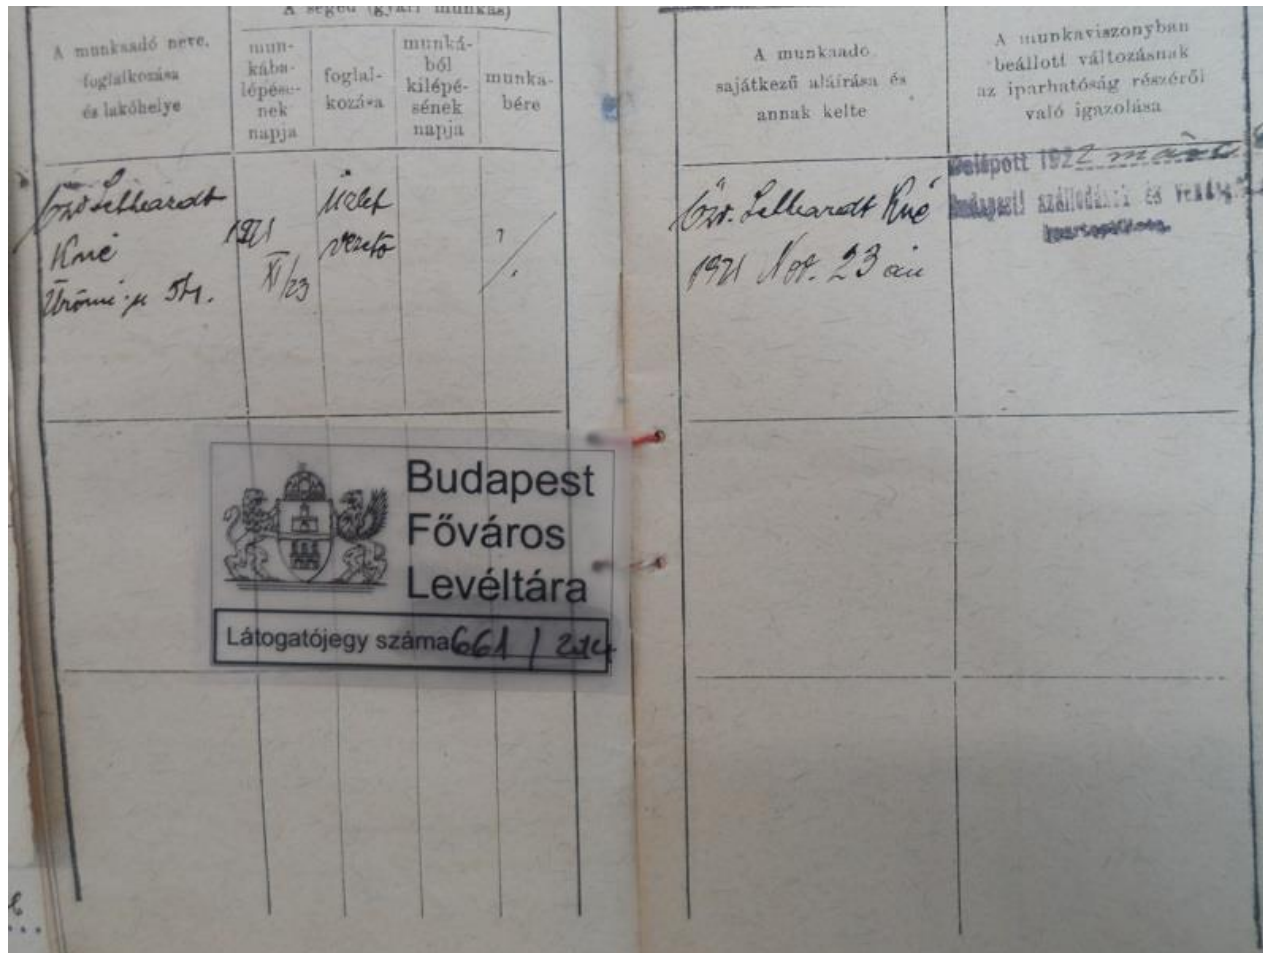 A segéd (gyári munkás)
A munkaadó neve,
foglalkozása
és lakóhelye
mun-
kába-
lépésé-
nek
napja
foglal-
kozása
munká-
ból
kilépé-
sének
napja
munka-
bére
Özv. Lelhardt
Kné
Ürömi u 54.
1921
XI/23
Üzlet
vezető
A munkaadó
sajátkezű aláírása és
annak kelte
A munkaviszonyban
beállott változásnak
az iparhatóság részéről
való igazolása
Özv. Lelhardt Kné
1921 Nov. 23 án
Belépott 1922
Budapesti szállodások és
Ipartestülete.
Budapest
Főváros
Levéltára
Látogatójegy száma 661 / 214